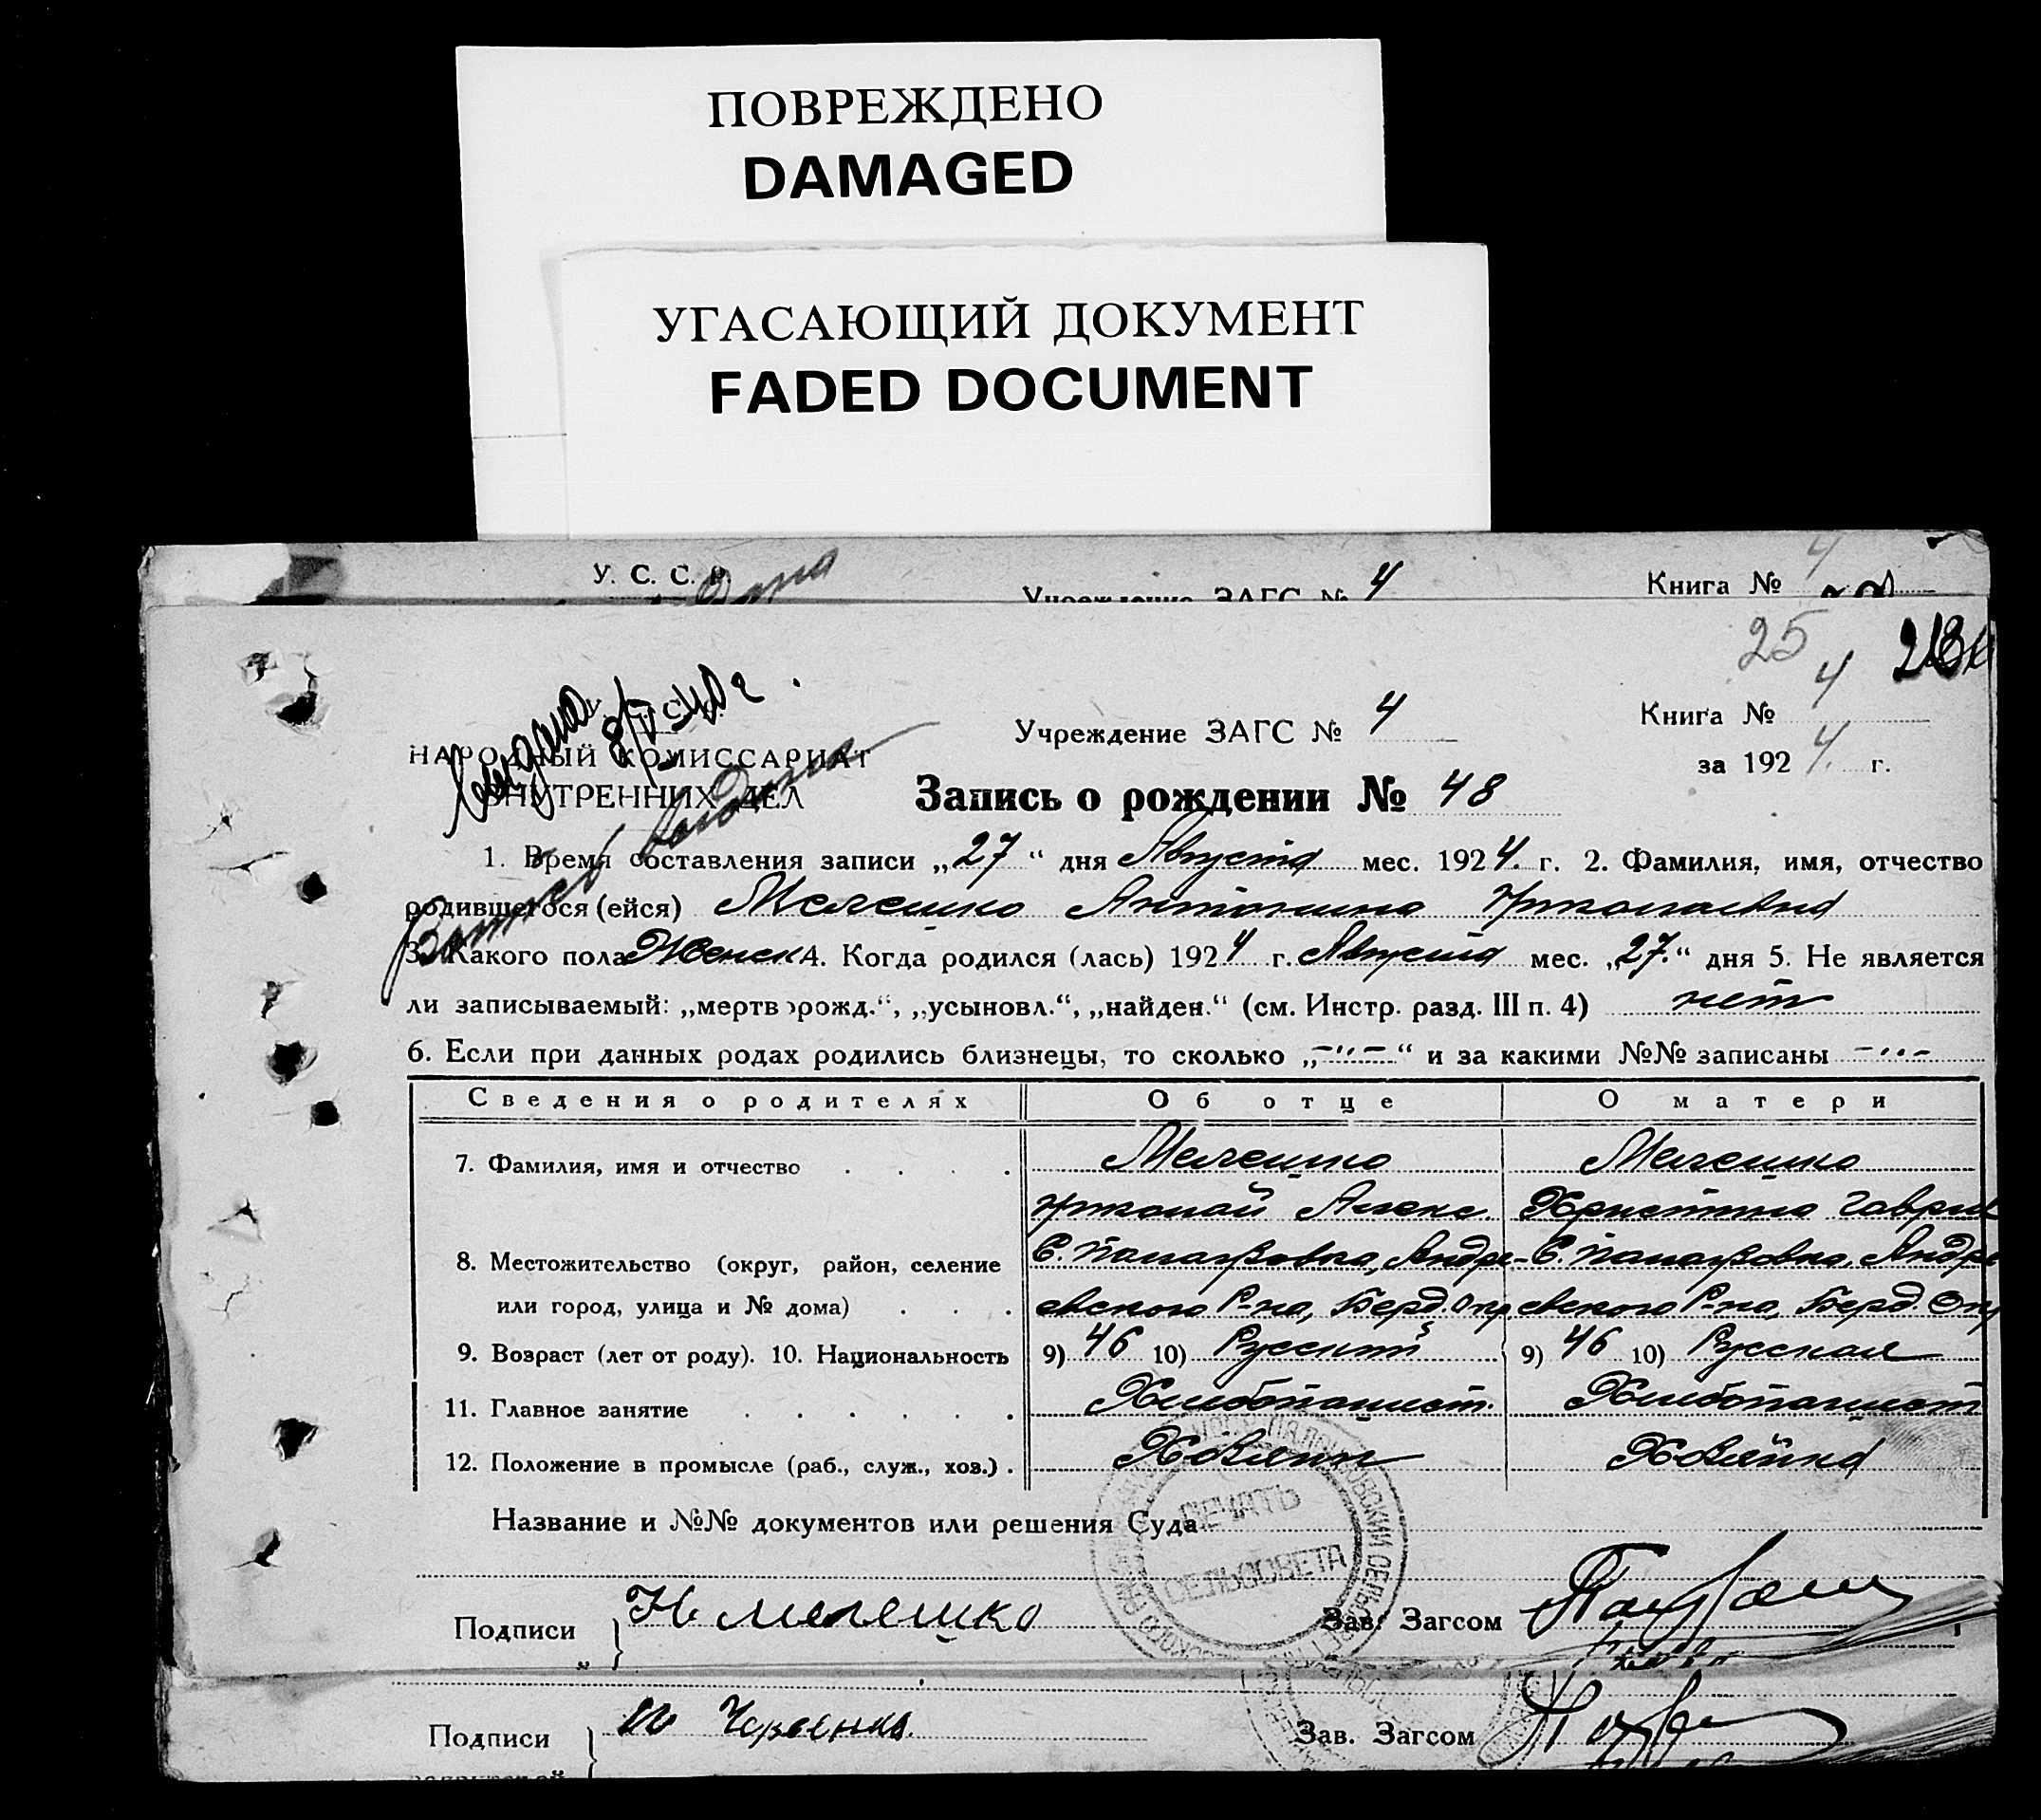 ПОВРЕЖДЕНО
DAMAGED
УГАСАЮЩИЙ ДОКУМЕНТ
FADED DOCUMENT
У. С. С. Р.
Учреждение ЗАГС № 4
Книга № 4
25
4
НАРОДНЫЙ КОМИССАРИАТ
ВНУТРЕННИХ ДЕЛ
Учреждение ЗАГС № 4
Книга №
за 1924. г.
Запись о рождении № 48
1. Время составления записи „27“ дня Августа мес. 1924. г. 2. Фамилия, имя, отчество
родившегося (ейся) Мелешко Антонина Николаевна
3. Какого пола Женск 4. Когда родился (лась) 1924 г. Августа мес. „27.“ дня 5. Не является
ли записываемый: „мертворожд.“, „усыновл.“, „найден.“ (см. Инстр. разд. III п. 4) нет
6. Если при данных родах родились близнецы, то сколько „-"-“ и за какими №№ записаны -"-
Сведения о родителях Об отце О матери
7. Фамилия, имя и отчество . . . . Мелешко Мелешко
Николай Алекс. Христина Гаврил
8. Местожительство (округ, район, селение С. Палаузовка, Андре- С. Палаузовка, Андре
или город, улица и № дома) . . . евского Р-на, Берд. Окр. евского Р-на, Берд. Окр
9. Возраст (лет от роду). 10. Национальность 9) 46 10) Русский 9) 46 10) Русская
11. Главное занятие . . . . . . Хлебопашест. Хлебопашест
12. Положение в промысле (раб., служ., хоз.) . Хозяин Хозяйка
Название и №№ документов или решения Суда
ПЕЧАТЬ
СЕЛЬСОВЕТА
Подписи } Н. Мелешко Зав. Загсом
Подписи } Зав. Загсом